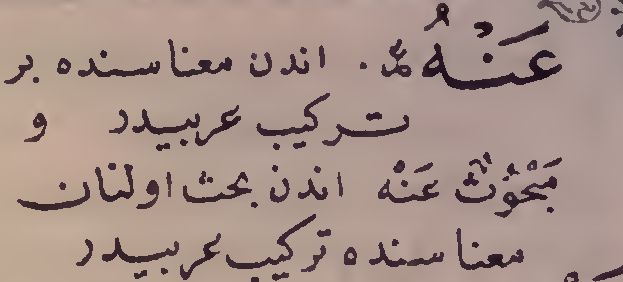 عَنْهُ عر. اندن معناسنده بر
تركيب عربيدر و
مَبْحُوثٌ عَنْه اندن بحث اولنان
معناسنده تركيب عربيدر